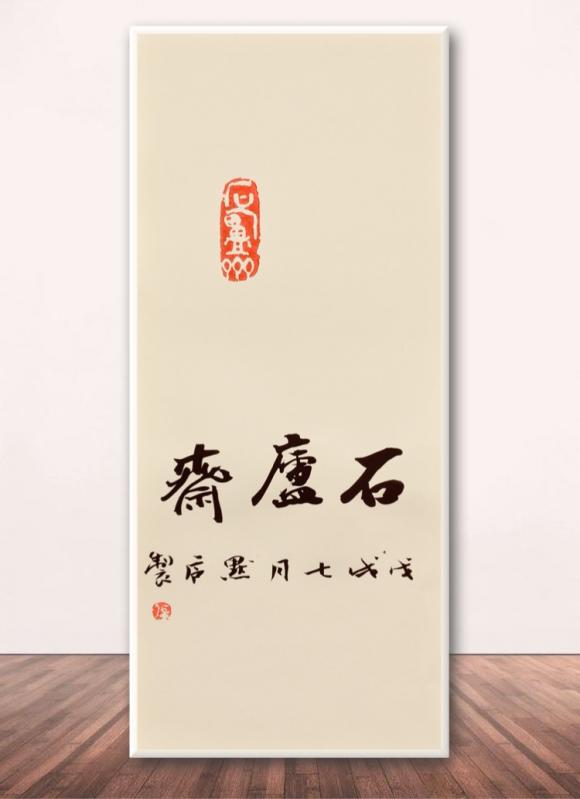 石廬齋
戊戌七月默后製